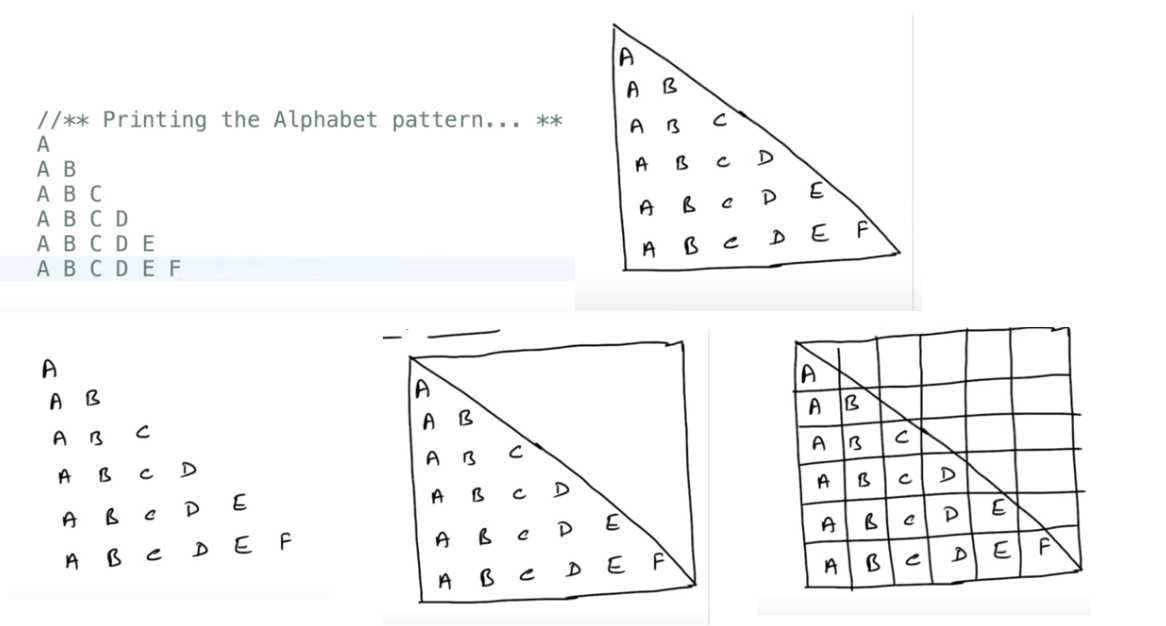 //** Printing the Alphabet pattern... **
A
A B
A B C
A B C D
A B C D E
A B C D E F
A
A B
A B C
A B C D
A B C D E
A B C D E F
A
A B
A B C
A B C D
A B C D E
A B C D E F
A
A B
A B C
A B C D
A B C D E
A B C D E F
A
A B
A B C
A B C D
A B C D E
A B C D E F